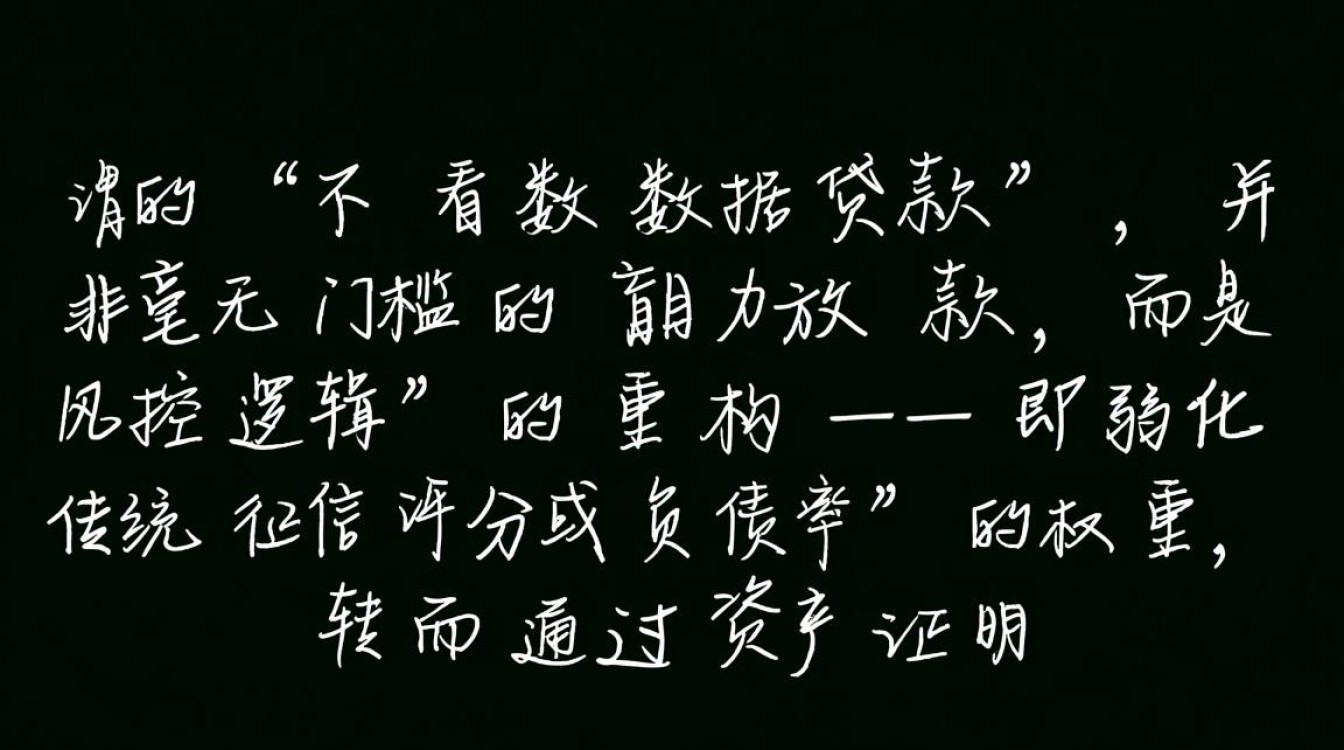 谓的“不看数数据贷款”，并
非毫无门槛的盲目力放款，而是
风控逻辑”的重构——即弱化
传统征信评分或负债率”的权重，
转而通过资产证明